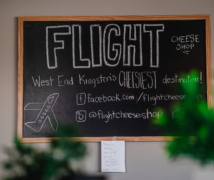 FLIGHT
CHEESE
SHOP
West End Kingston's CHEESIEST destination!
facebook.com/flightcheese
@flightcheeseshop